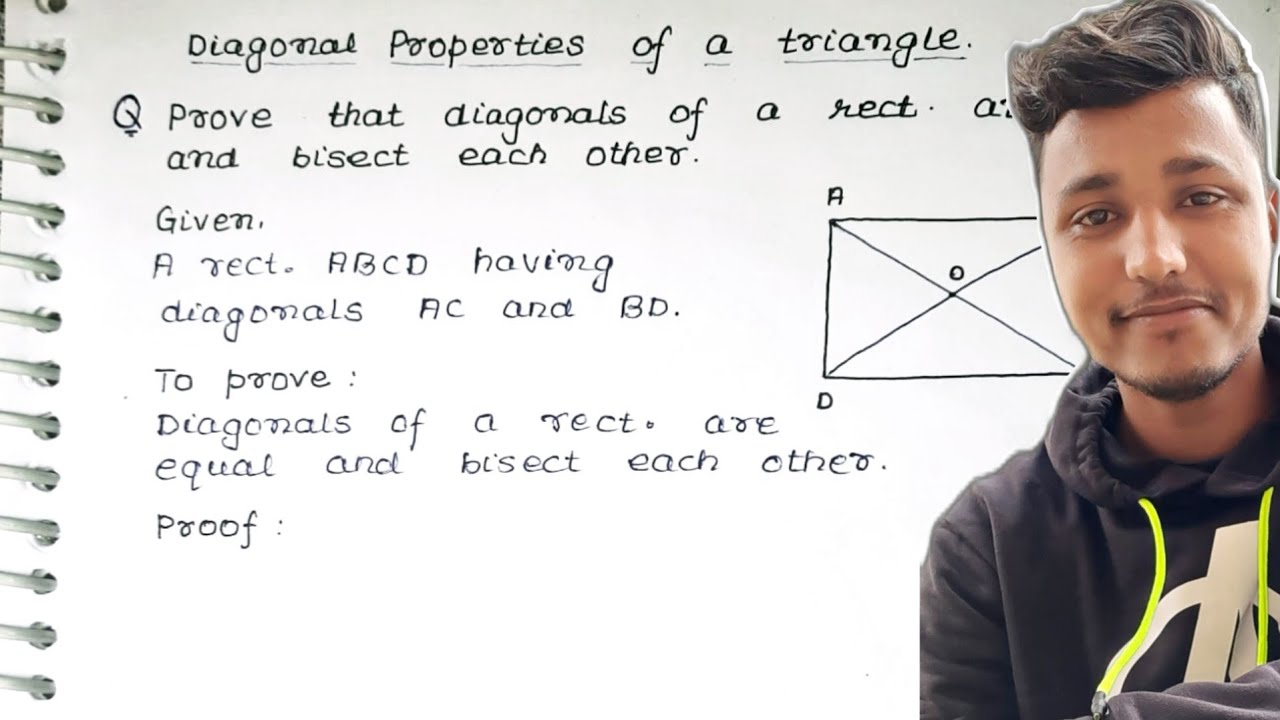 Diagonal Properties of a triangle.
Q Prove that diagonals of a rect.
and bisect each other.
Given.
A rect. ABCD having
diagonals AC and BD.
A
O
D
To prove:
Diagonals of a rect. are
equal and bisect each other.
Proof: